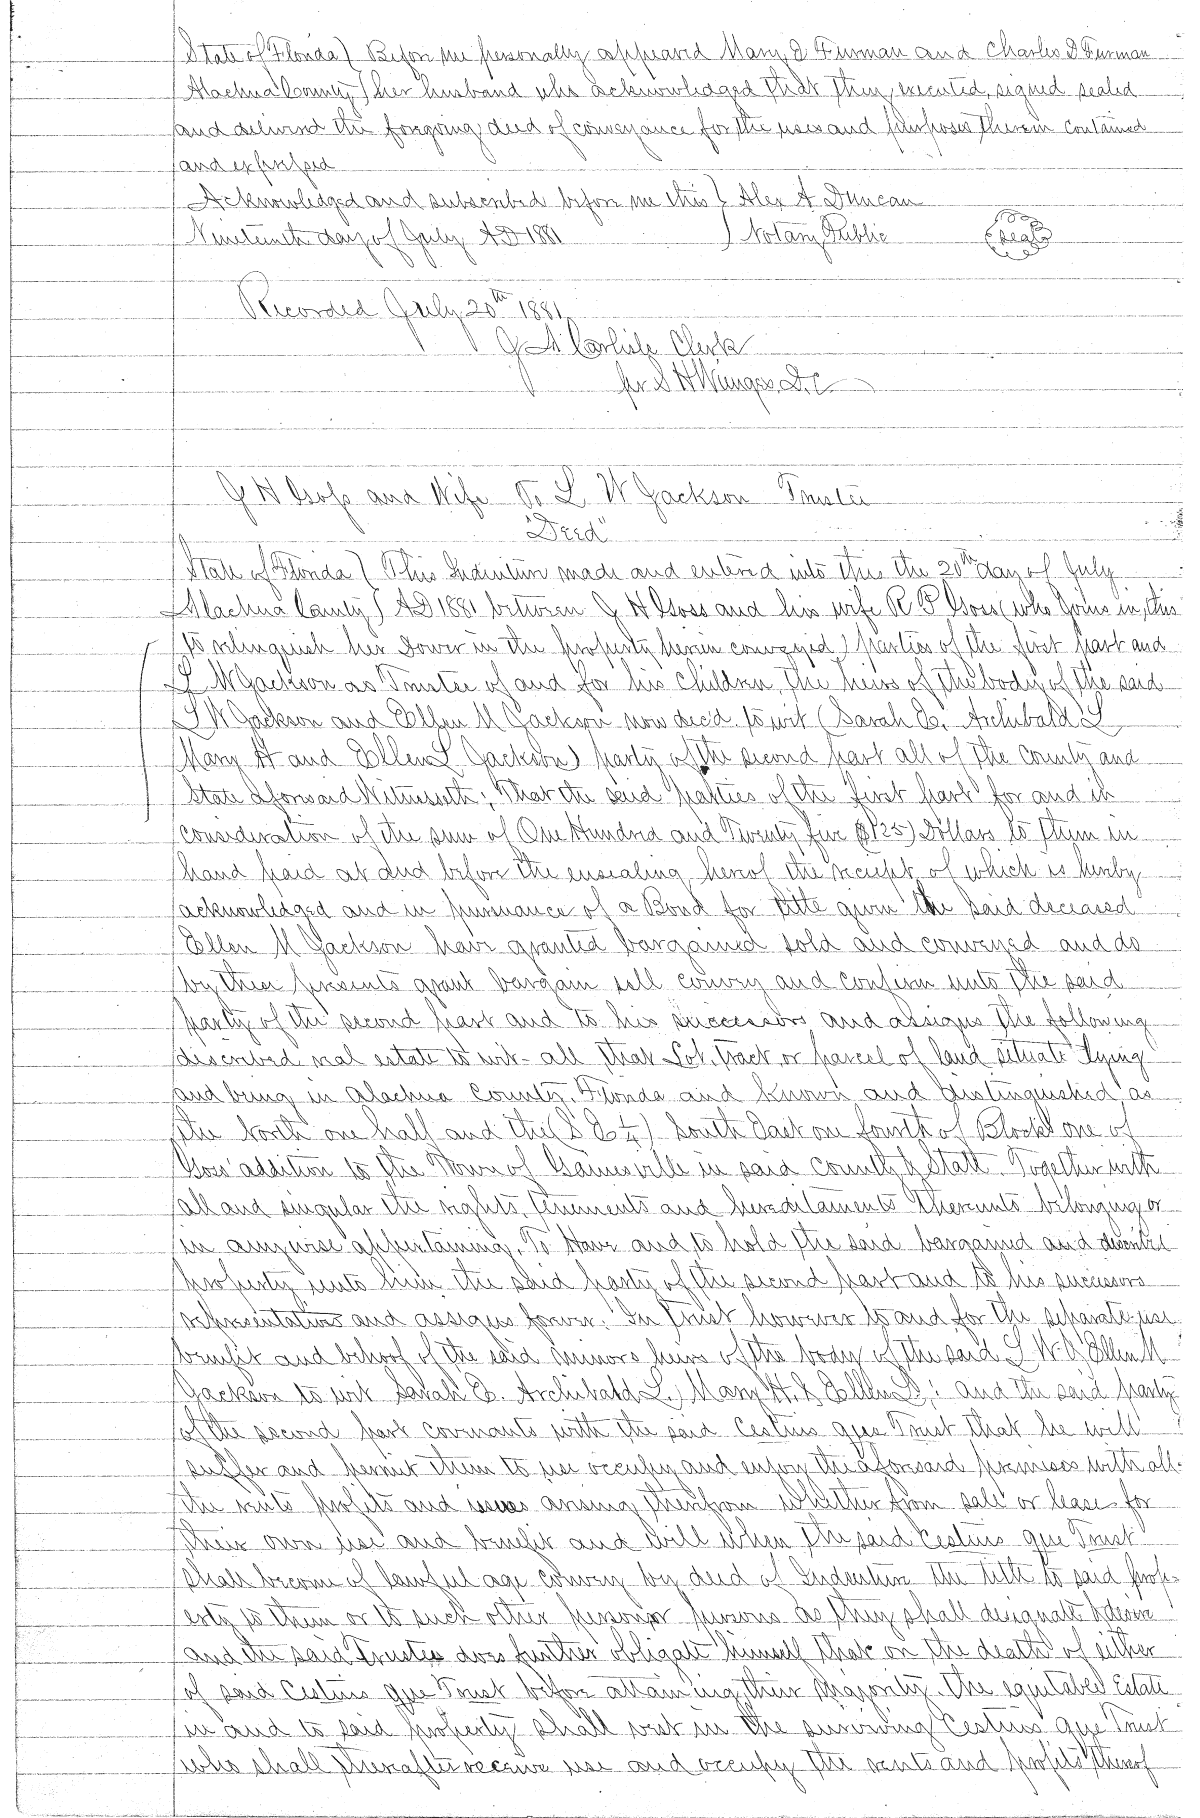 State of Florida } Before me personally appeared Mary J Furman and Charles D Furman
Alachua County } her husband who acknowledged that they executed, signed sealed
and delivered the foregoing deed of conveyance for the uses and purposes therein contained
and expressed
Acknowledged and subscribed before me this } Alex A Duncan
Nineteenth day of July AD 1881 } Notary Public seal
Recorded July 20th 1881
J A Carlisle Clerk
pr S H Wienges D.C
J H Goss and Wife To L W Jackson Trustee
"Deed"
State of Florida } This Indenture made and entered into this the 20th day of July
Alachua County } AD 1881 between J H Goss and his wife R P Goss (who joins in this
to relinquish her dower in the property herein conveyed) parties of the first part and
L W Jackson as Trustee of and for his children, the heirs of the body of the said
L W Jackson and Ellen M Jackson now dec'd to wit (Sarah E. Archibald L
Mary H and Ellen L Jackson) party of the second part all of the County and
State aforsaid Witnesseth; That the said parties of the first part for and in
consideration of the sum of One Hundred and Twenty five $125) Dollars to them in
hand paid at and before the ensealing hereof the receipt of which is hereby
acknowledged and in pursuance of a Bond for title given the said deceased
Ellen M Jackson have granted bargained sold and conveyed and do
by these presents grant bargain sell convey and confirm unto the said
party of the second part and to his successors and assigns the following
described real estate to wit - all that Lot, tract or parcel of land situate lying
and being in Alachua County, Florida and known and distinguished as
the North one half and the (S E 1/4) South East one fourth of Block one of
Goss' addition to the Town of Gainesville in said county & State. Together with
all and singular the rights, tenements and hereditaments thereunto belonging or
in anywise appertaining. To Have and to hold the said bargained and described
property unto him the said party of the second part and to his successors
representatives and assigns forever. In trust however to and for the separate use
benefit and behoof of the said minors heirs of the body of the said L W & Ellen M
Jackson to wit Sarah E. Archibald L., Mary H. & Ellen L; and the said party
of the second part covenants with the said Cestius que Trust that he will
suffer and permit them to use occupy and enjoy the aforesaid premises with all
the rents profits and issues arising therefrom whether from sale or lease for
their own use and benefit and will when the said Cestius que Trust
shall become of lawful age convey by deed of Indenture the title to said prop-
erty to them or to such other person or persons as they shall designate & desire
and the said Trustee does further obligate himself that on the death of either
of said Cestius que Trust before attaining their Majority the equitable Estate
in and to said property shall vest in the surviving Cestius que Trust
who shall thereafter receive use and occupy the rents and profits thereof